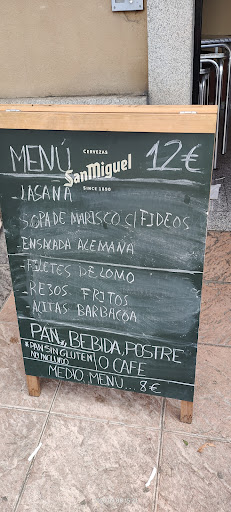 CERVEZAS
MENÚ SanMiguel 12€
SINCE 1890
LASAÑA
SOPA DE MARISCO C/ FIDEOS
ENSALADA ALEMANA
- FILETES DE LOMO
- REJOS FRITOS
- ALITAS BARBACOA
PAN, BEBIDA, POSTRE
*PAN SIN GLUTEN O CAFE
NO INCLUIDO
MEDIO MENU... 8€